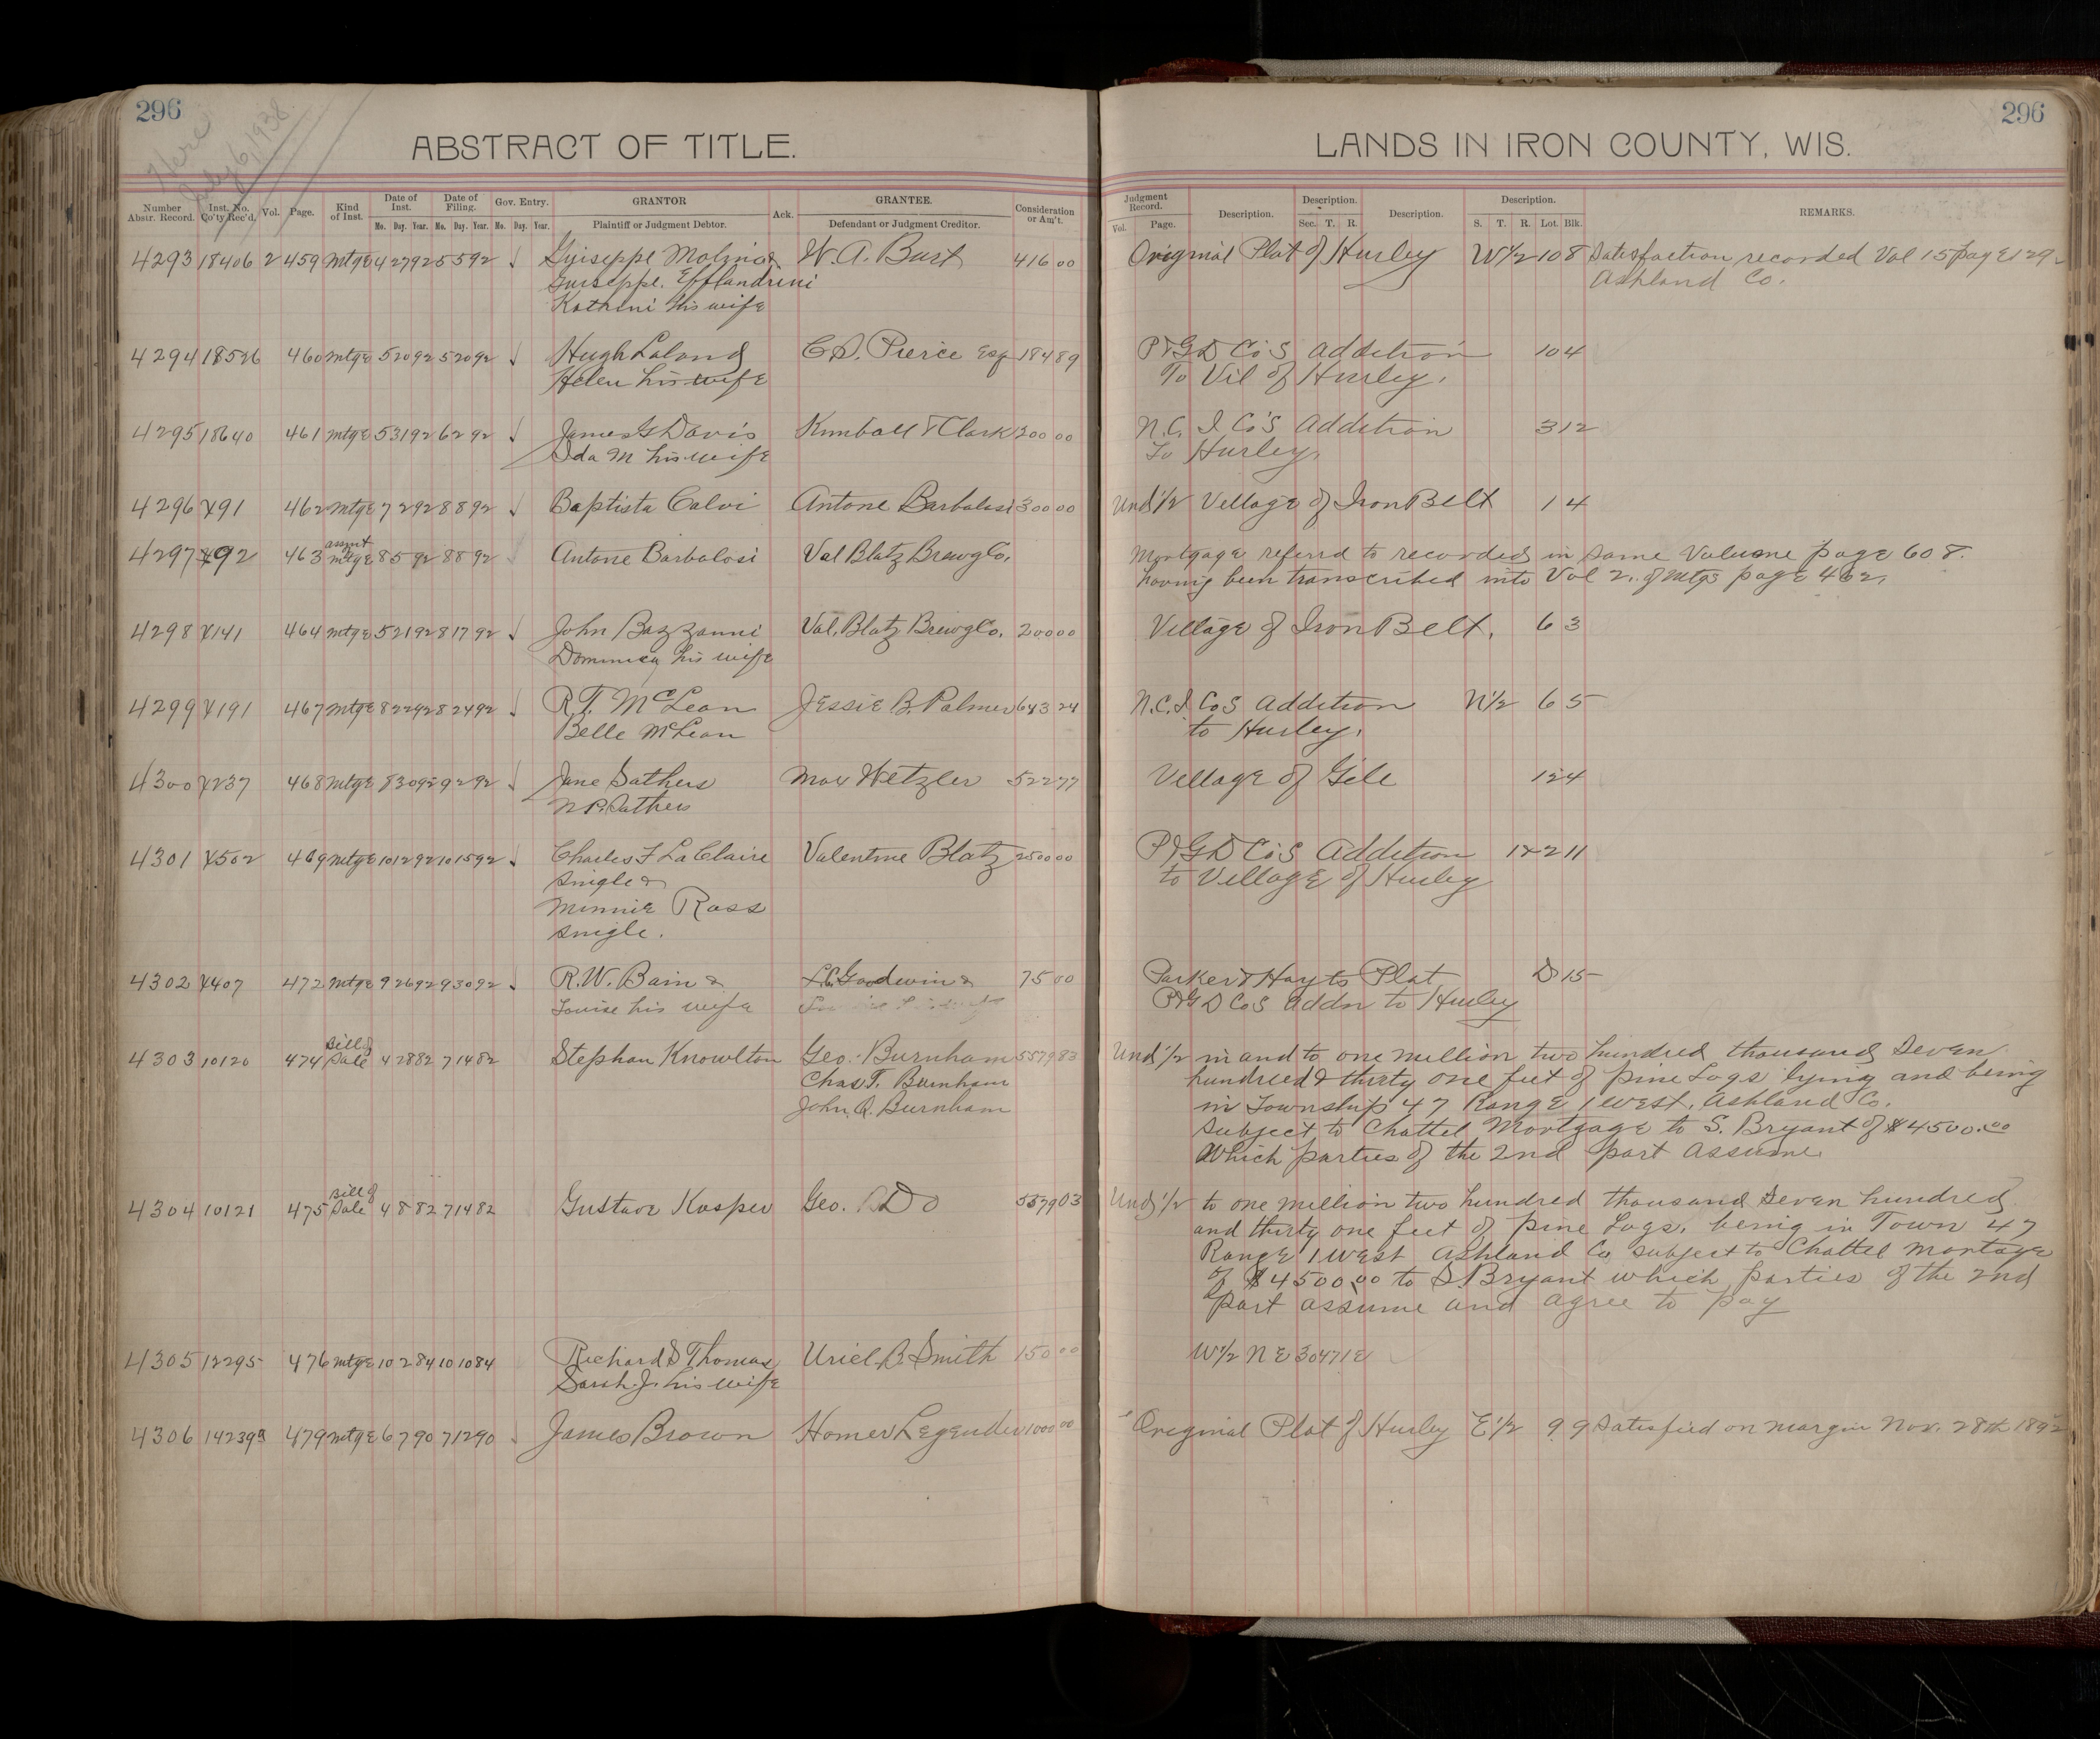 296
Here
July 6, 1938
ABSTRACT OF TITLE.
Number Abstr. Record. Inst. No. Co'ty Rec'd. Vol. Page. Kind of Inst. Date of Inst. Date of Filing. Gov. Entry. GRANTOR Ack. GRANTEE. Consideration or Am't.
Mo. Day. Year. Mo. Day. Year. Mo. Day. Year. Plaintiff or Judgment Debtor. Defendant or Judgment Creditor.
4293 18406 2 459 mtge 4 27 92 5 5 92 Guiseppe Molina & W. A. Burt 416 00
Guiseppe. Efflandrini
Kathrini his wife
4294 18526 460 mtge 5 20 92 5 20 92 Hugh Laland C. S. Pierce Esq 184 89
Helen his wife
4295 18640 461 mtge 5 31 92 6 2 92 James G Davis Kimball & Clark 200 00
Ida M his wife
4296 X91 462 mtge 7 2 92 8 8 92 Baptista Calvi Antone Barbalosi 300 00
4297 X92 463 assmt mtge 8 5 92 8 8 92 Antone Barbalosi Val Blatz Brewg Co.
4298 X141 464 mtge 5 21 92 8 17 92 John Bazzanni Val. Blatz Brewg Co. 200 00
his wife
4299 X191 467 mtge 8 22 92 8 24 92 R. T. McLean Jessie B. Palmer 643 24
Belle McLean
4300 X237 468 mtge 8 30 92 9 2 92 Jane Sathers Max Wetzler 522 77
N P. Sathers
4301 X502 469 mtge 10 12 92 10 15 92 Charles F LaClaire Valentine Blatz 2500 00
single &
Minnie Ross
single.
4302 X407 472 mtge 9 26 92 9 30 92 R. W. Bain & L. C. Goodwin & 75 00
Louise his wife
4303 10120 474 Bill of Sale 4 28 82 7 14 82 Stephan Knowlton Geo. Burnham 5579 83
Chas T. Burnham
John. Q. Burnham
4304 10121 475 Bill of Sale 4 8 82 7 14 82 Gustave Kasper Geo. Do 5579 03
4305 12295 476 mtge 10 2 84 10 10 84 Richard S Thomas Uriel. B. Smith 150 00
Sarah J. his wife
4306 14239 479 mtge 6 7 90 7 12 90 James Brown Homer Legender 1000 00
296
LANDS IN IRON COUNTY, WIS.
Judgment Record. Description. Description. Description. Description. REMARKS.
Vol. Page. Sec. T. R. S. T. R. Lot. Blk.
Original Plat of Hurley W 1/2 10 8 Satisfaction recorded Vol 15 page 129
Ashland Co.
P & G D Co's Addition 10 4
To Vil of Hurley.
N. C. I Co's Addition 3 12
To Hurley.
Und 1/2 Village of Iron Belt 1 4
Mortgage referrd to recorded in same Volume page 608.
having been transcribed into Vol 2. of Mtgs page 462.
Village of Iron Belt. 6 3
N. C. I Co S Addition N 1/2 6 5
to Hurley.
Village of Gile 12 4
P & G D Co's Addition 1 & 2 11
to Village of Hurley
Parker & Hayts Plat D 15
P & G D Co S Addn to Hurley
Und 1/2 in and to one million two hundred thousand Seven
hundreed & thirty one feet of pine Logs lying and being
in Township 47 Range 1 West. Ashland Co.
Subject to Chattel Mortgage to S. Bryant of $4500.00
Which parties of the 2nd part assume
Und 1/2 to one million two hundred thousand Seven hundred
and thirty one feet of pine Logs. being in Town 47
Range 1 West Ashland Co subject to Chattel mortage
of $4500.00 to S. Bryant which parties of the 2nd
part assume and agree to pay
W 1/2 N E 30 47 1 E
Original Plat of Hurley E 1/2 9 9 Satisfied on margin Nov. 28th 1892